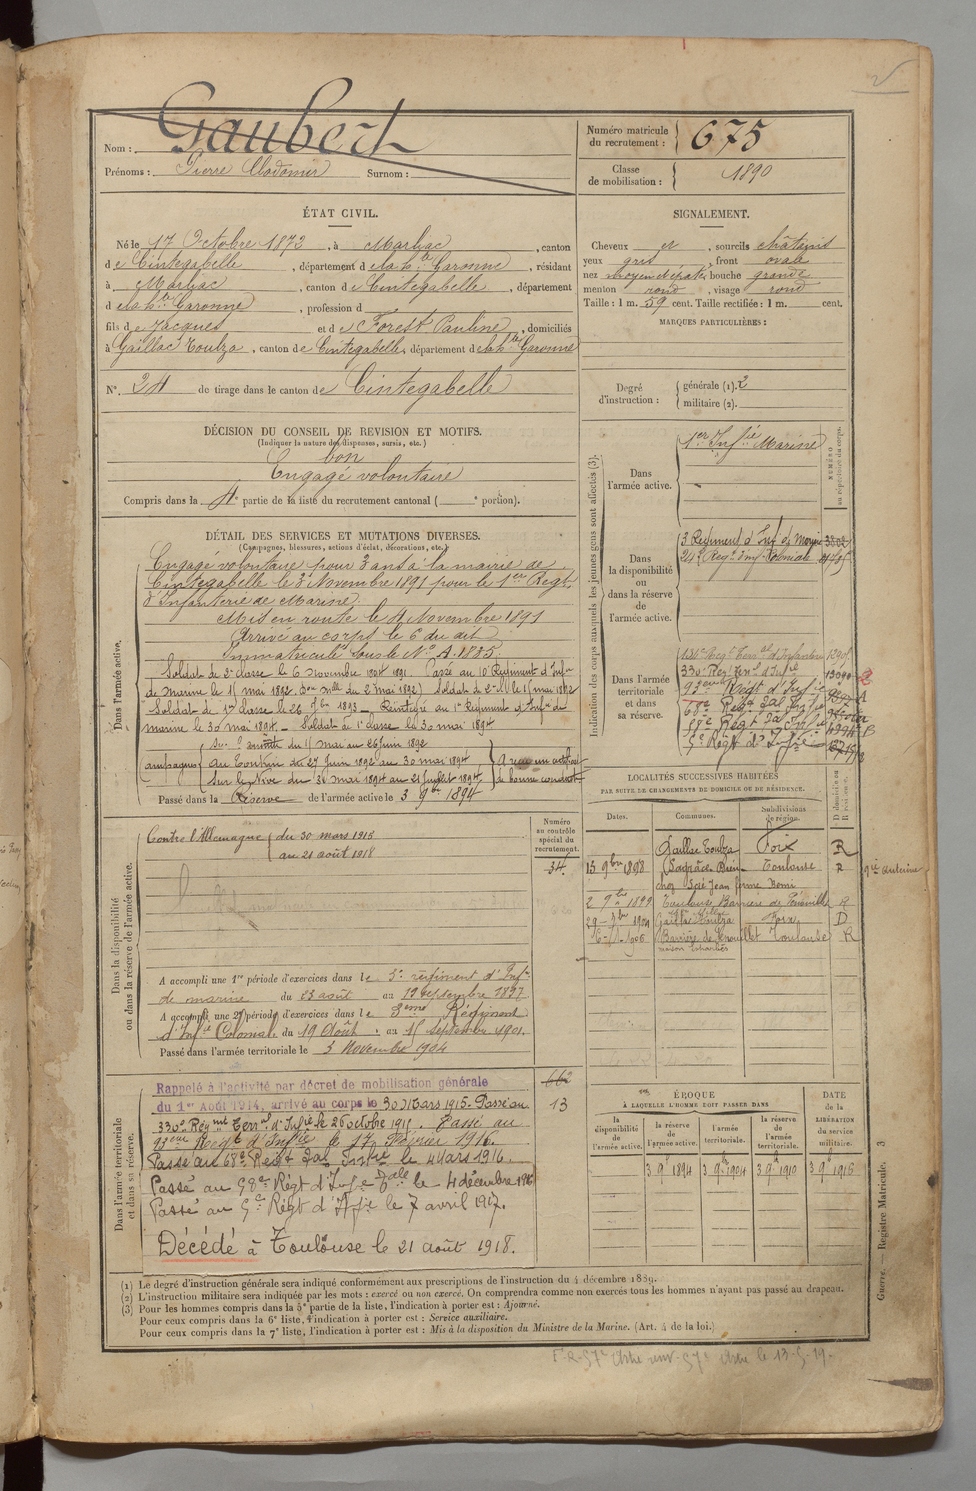 Nom : Gaubert
Prénoms : Pierre Clodomir Surnom :
Numéro matricule
du recrutement : 675
Classe
de mobilisation : 1890
ÉTAT CIVIL.
Né le 17 Octobre 1872, à Marliac, canton
de Cintegabelle, département de la hte Garonne, résidant
à Marliac, canton de Cintegabelle, département
de la hte Garonne, profession d
fils de Jacques et de Forest Pauline, domiciliés
à Gaillac Toulza, canton de Cintegabelle, département de la hte Garonne
N° 24 de tirage dans le canton de Cintegabelle
SIGNALEMENT.
Cheveux et, sourcils châtains
yeux gris, front ovale
nez moyen et épaté, bouche grande
menton rond, visage rond
Taille : 1 m. 59 cent. Taille rectifiée : 1 m. cent.
MARQUES PARTICULIÈRES :
Degré
d'instruction :
générale (1). 2
militaire (2).
DÉCISION DU CONSEIL DE REVISION ET MOTIFS.
(Indiquer la nature des dispenses, sursis, etc.)
bon
Engagé volontaire
Compris dans la 4e partie de la liste du recrutement cantonal ( e portion).
DÉTAIL DES SERVICES ET MUTATIONS DIVERSES.
(Campagnes, blessures, actions d'éclat, décorations, etc.)
Dans l'armée active.
Engagé volontaire pour 3 ans à la mairie de
Cintegabelle le 3 Novembre 1891 pour le 1er Regt
d'Infanterie de Marine.
Mis en route le 4 Novembre 1891
Arrivé au corps le 6 du dit
Immatriculé sous le No A.1835
Soldat de 2e classe le 6 novembre 1891. Passé au 10e Régiment d'Infie
de marine le 1er mai 1892 Soldat de 2e Cl le 1er mai 1892
Soldat de 1re classe le 26 1893 _ Réintégré au 1er Régiment d'Infie de
marine le 30 mai 1894 _ Soldat de 1e classe le 30 mai 1894
Campagnes du 1er mai au 26 juin 1892
au Tonkin du 27 juin 1892 au 30 mai 1894
Sur le Nive du 31 mai 1894 au 21 juillet 1894
A reçu un certificat
de bonne conduite
Passé dans la Réserve de l'armée active le 3 9bre 1894
Dans la disponibilité
ou dans la réserve de l'armée active.
Contre l'Allemagne du 30 mars 1915
au 21 août 1918
Numéro
au contrôle
spécial du
recrutement.
34
A accompli une 1re période d'exercices dans le 3e régiment d'Infie
de marine du 23 août au 19 septembre 1897
A accompli une 2e période d'exercices dans le Régiment
d'Infie Coloniale du 19 Août au 15 septembre 1901.
Passé dans l'armée territoriale le 3 Novembre 1904
Dans l'armée territoriale
et dans sa réserve.
Rappelé à l'activité par décret de mobilisation générale
du 1er Août 1914, arrivé au corps le 30 Mars 1915. Passé au
330e Régiment Terral d'Infie le 26 octobre 1915. Passé au
93eme Régt d'Infie le 17 Février 1916.
Passé au 68e Régt Ial Infie le 4 Mars 1916.
Passé au 58e Régt d'Infie Iale le 4 décembre 1916
Passé au 5e Régt d'Infie le 7 avril 1917.
Décédé à Toulouse le 21 août 1918.
662
13
Indication des corps auxquels les jeunes gens sont affectés (3).
NUMÉRO
au répertoire du corps.
Dans
l'armée active.
1er Infie Marine
Dans
la disponibilité
ou
dans la réserve
de
l'armée active.
3 Régiment d'Inf de Marine 3302
24e Regt d'inf Coloniale
Dans l'armée
territoriale
et dans
sa réserve.
Regt Terral d'Infanterie
330e Régt Terral d'Infie
93eme Régt d'Infie
68e Régt Ial Infie
58e Régt Ial Infie
5e Régt d'Infie
LOCALITÉS SUCCESSIVES HABITÉES
PAR SUITE DE CHANGEMENTS DE DOMICILE OU DE RÉSIDENCE.
Dates. Communes. Subdivisions de région. D domicile ou R résidence.
Gaillac Toulza Foix R
15 9bre 1898 Toulouse R
chez Jean ferme
1899 Toulouse Barrière de R
1904 Gaillac Toulza Foix D
1906 Barrière de Toulouse R
ÉPOQUE
À LAQUELLE L'HOMME DOIT PASSER DANS
la
disponibilité
de
l'armée active.
la réserve
de
l'armée active.
l'armée
territoriale.
la réserve
de
l'armée
territoriale.
DATE
de la
LIBÉRATION
du service
militaire.
3 9e 1894 3 9e 1904 3 9e 1910 3 9e 1916
Guerre. — Registre Matricule. 3
(1) Le degré d'instruction générale sera indiqué conformément aux prescriptions de l'instruction du 4 décembre 1889.
(2) L'instruction militaire sera indiquée par les mots : exercé ou non exercé. On comprendra comme non exercés tous les hommes n'ayant pas passé au drapeau.
(3) Pour les hommes compris dans la 5e partie de la liste, l'indication à porter est : Ajourné.
Pour ceux compris dans la 6e liste, l'indication à porter est : Service auxiliaire.
Pour ceux compris dans la 7e liste, l'indication à porter est : Mis à la disposition du Ministre de la Marine. (Art. 4 de la loi.)